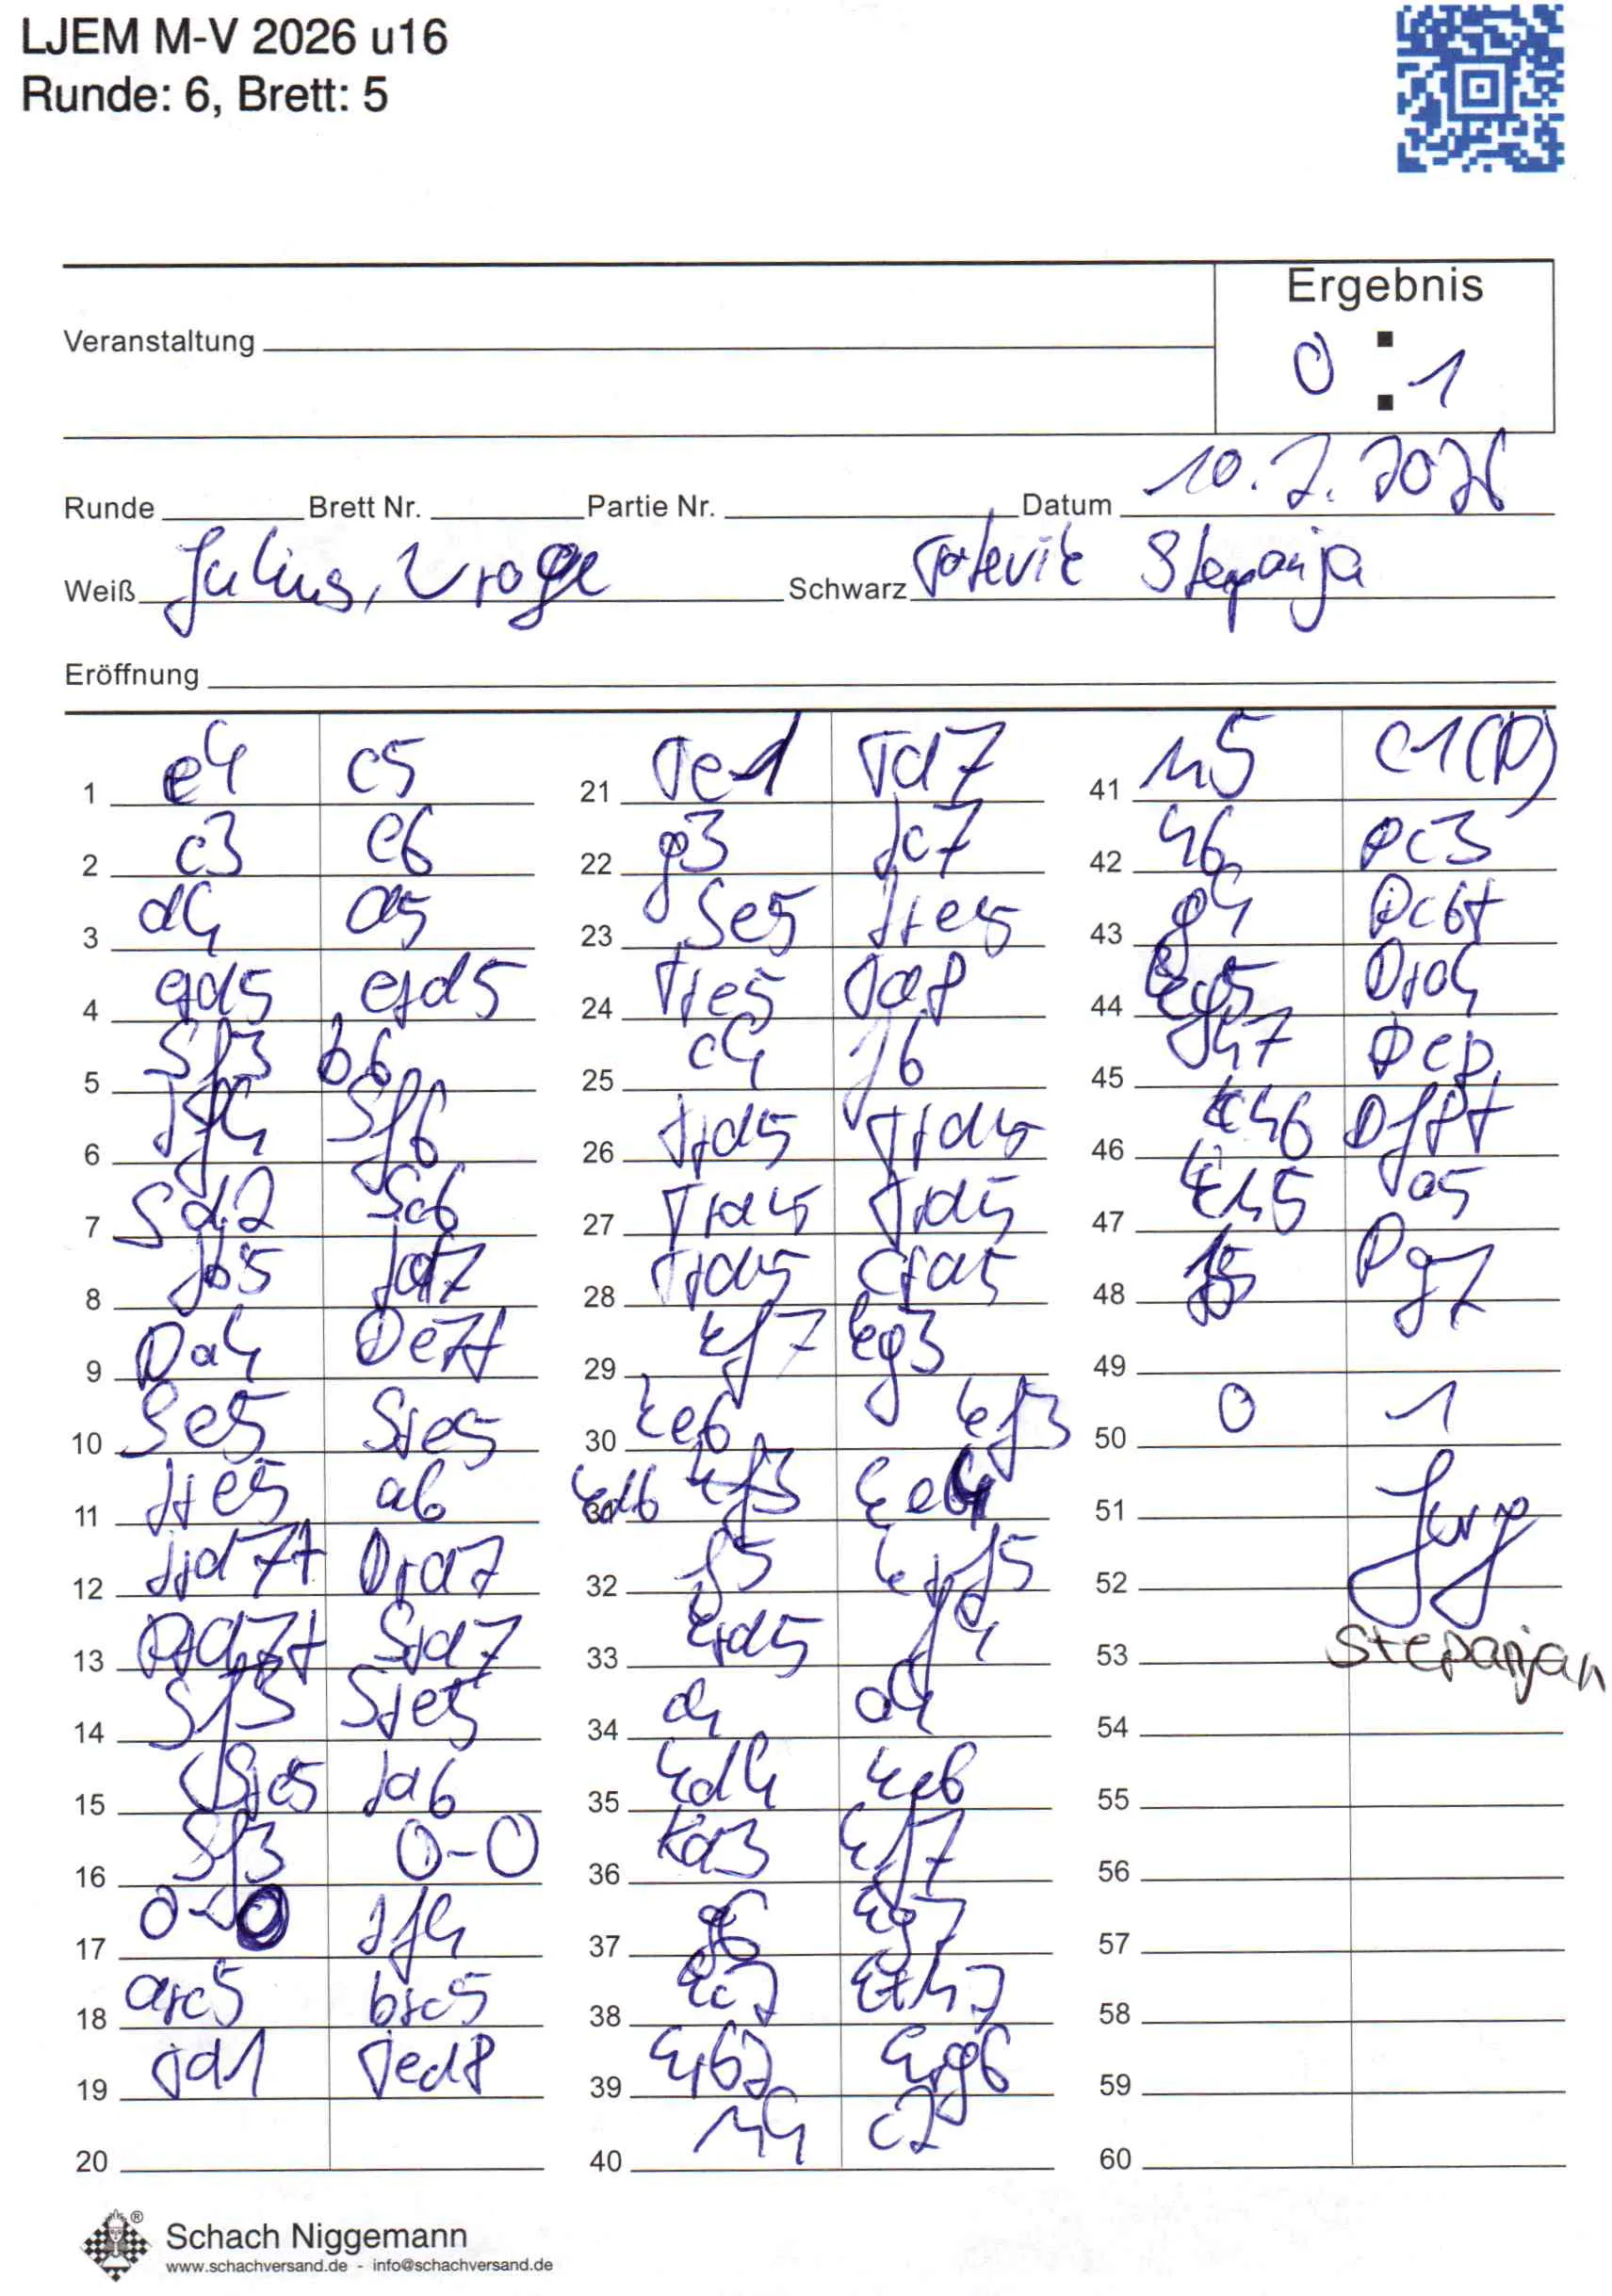 LJEM M-V 2026 u16
Runde: 6, Brett: 5
Ergebnis
Veranstaltung
0 : 1
Runde Brett Nr. Partie Nr. Datum 10.2.2026
Weiß Julius, Schwarz
Eröffnung
1 e4 c5
2 c3 e6
3 d4 d5
4 exd5 exd5
5 Sf3 b6
6 Lf4 Sf6
7 Sd2 Sc6
8 Lb5 Ld7
9 Da4 De7+
10 Se5 Sxe5
11 Lxe5 a6
12 Lxd7+ Dxd7
13 Dxd7+ Sxd7
14 Sf3 Sxe5
15 Sxe5 Ld6
16 Sf3 0-0
17 0-0 Lf4
18 dxc5 bxc5
19 Td1 Ted8
20
21 Te1 Td7
22 g3 Lc7
23 Se5 Lxe5
24 Txe5 Td8
25 c4 f6
26 Txd5 Txd5
27 Txd5 Txd5
28 Txd5 cxd5
29 Kf7 Kg3
30 Ke6 Kf3
31 Kd6 Kf3 Ke4
32 f5 Kxf5
33 Kxd5 g4
34 c4 a4
35 Kd4 Ke6
36 Kd3 Kf7
37 g6 Kg7
38 Kc2 Kxh7
39 Kxb2 Kxg6
40 h4 c2
41 h5 c1(D)
42 h6 Dc3
43 g4 Dc6+
44 Kg5 Dxa4
45 h7 De8
46 Kh6 Df8+
47 Kh5 a5
48 Dg7
49
50 0 1
51
52
53 Stepanjan
54
55
56
57
58
59
60
Schach Niggemann
www.schachversand.de - info@schachversand.de